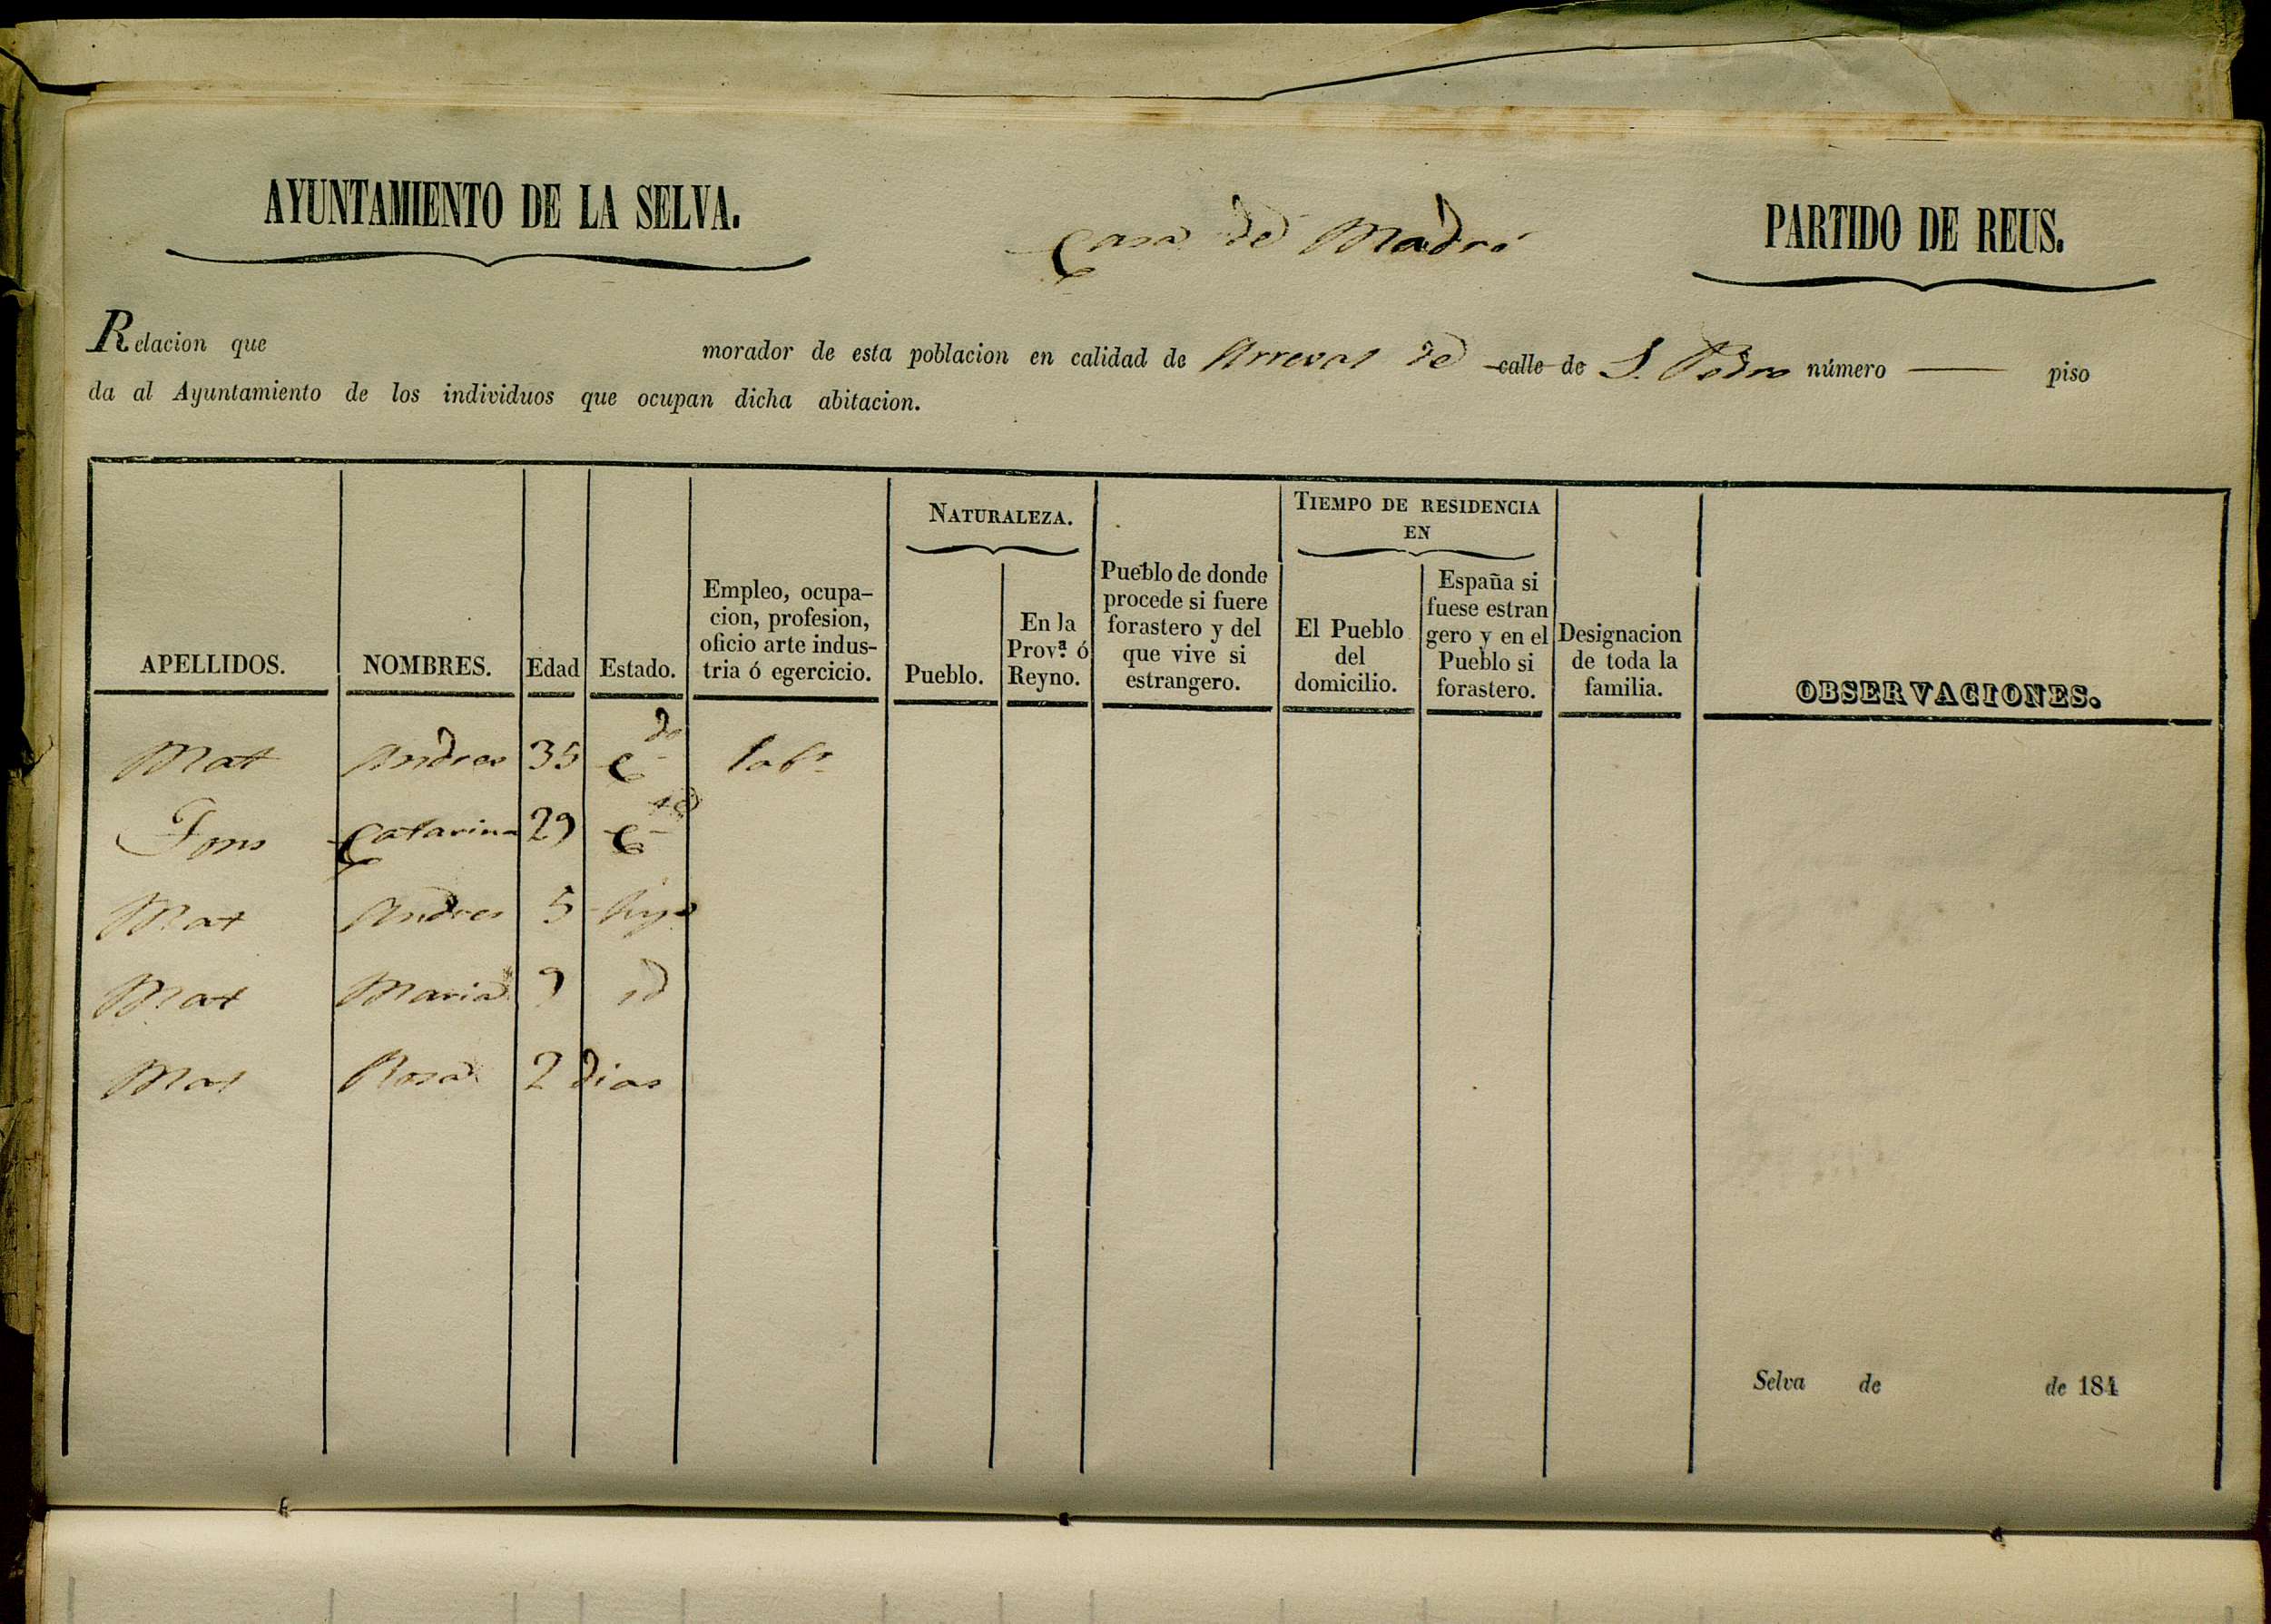 AYUNTAMIENTO DE LA SELVA.
Casa de Madró
PARTIDO DE REUS.
Relacion que morador de esta poblacion en calidad de Arreval de calle de S. Pedro número — piso
da al Ayuntamiento de los individuos que ocupan dicha abitacion.
APELLIDOS.
NOMBRES.
Edad
Estado.
Empleo, ocupa-
cion, profesion,
oficio arte indus-
tria ó egercicio.
NATURALEZA.
Pueblo.
En la
Prov.ª ó
Reyno.
Pueblo de donde
procede si fuere
forastero y del
que vive si
estrangero.
TIEMPO DE RESIDENCIA
EN
El Pueblo
del
domicilio.
España si
fuese estran
gero y en el
Pueblo si
forastero.
Designacion
de toda la
familia.
OBSERVACIONES.
Mat Andres 35 C.do labr
Fons Catarina 29 C.
Mat Andres 5 hijo
Mat Maria 9 id
Mat Rosa 2 dias
Selva de de 184